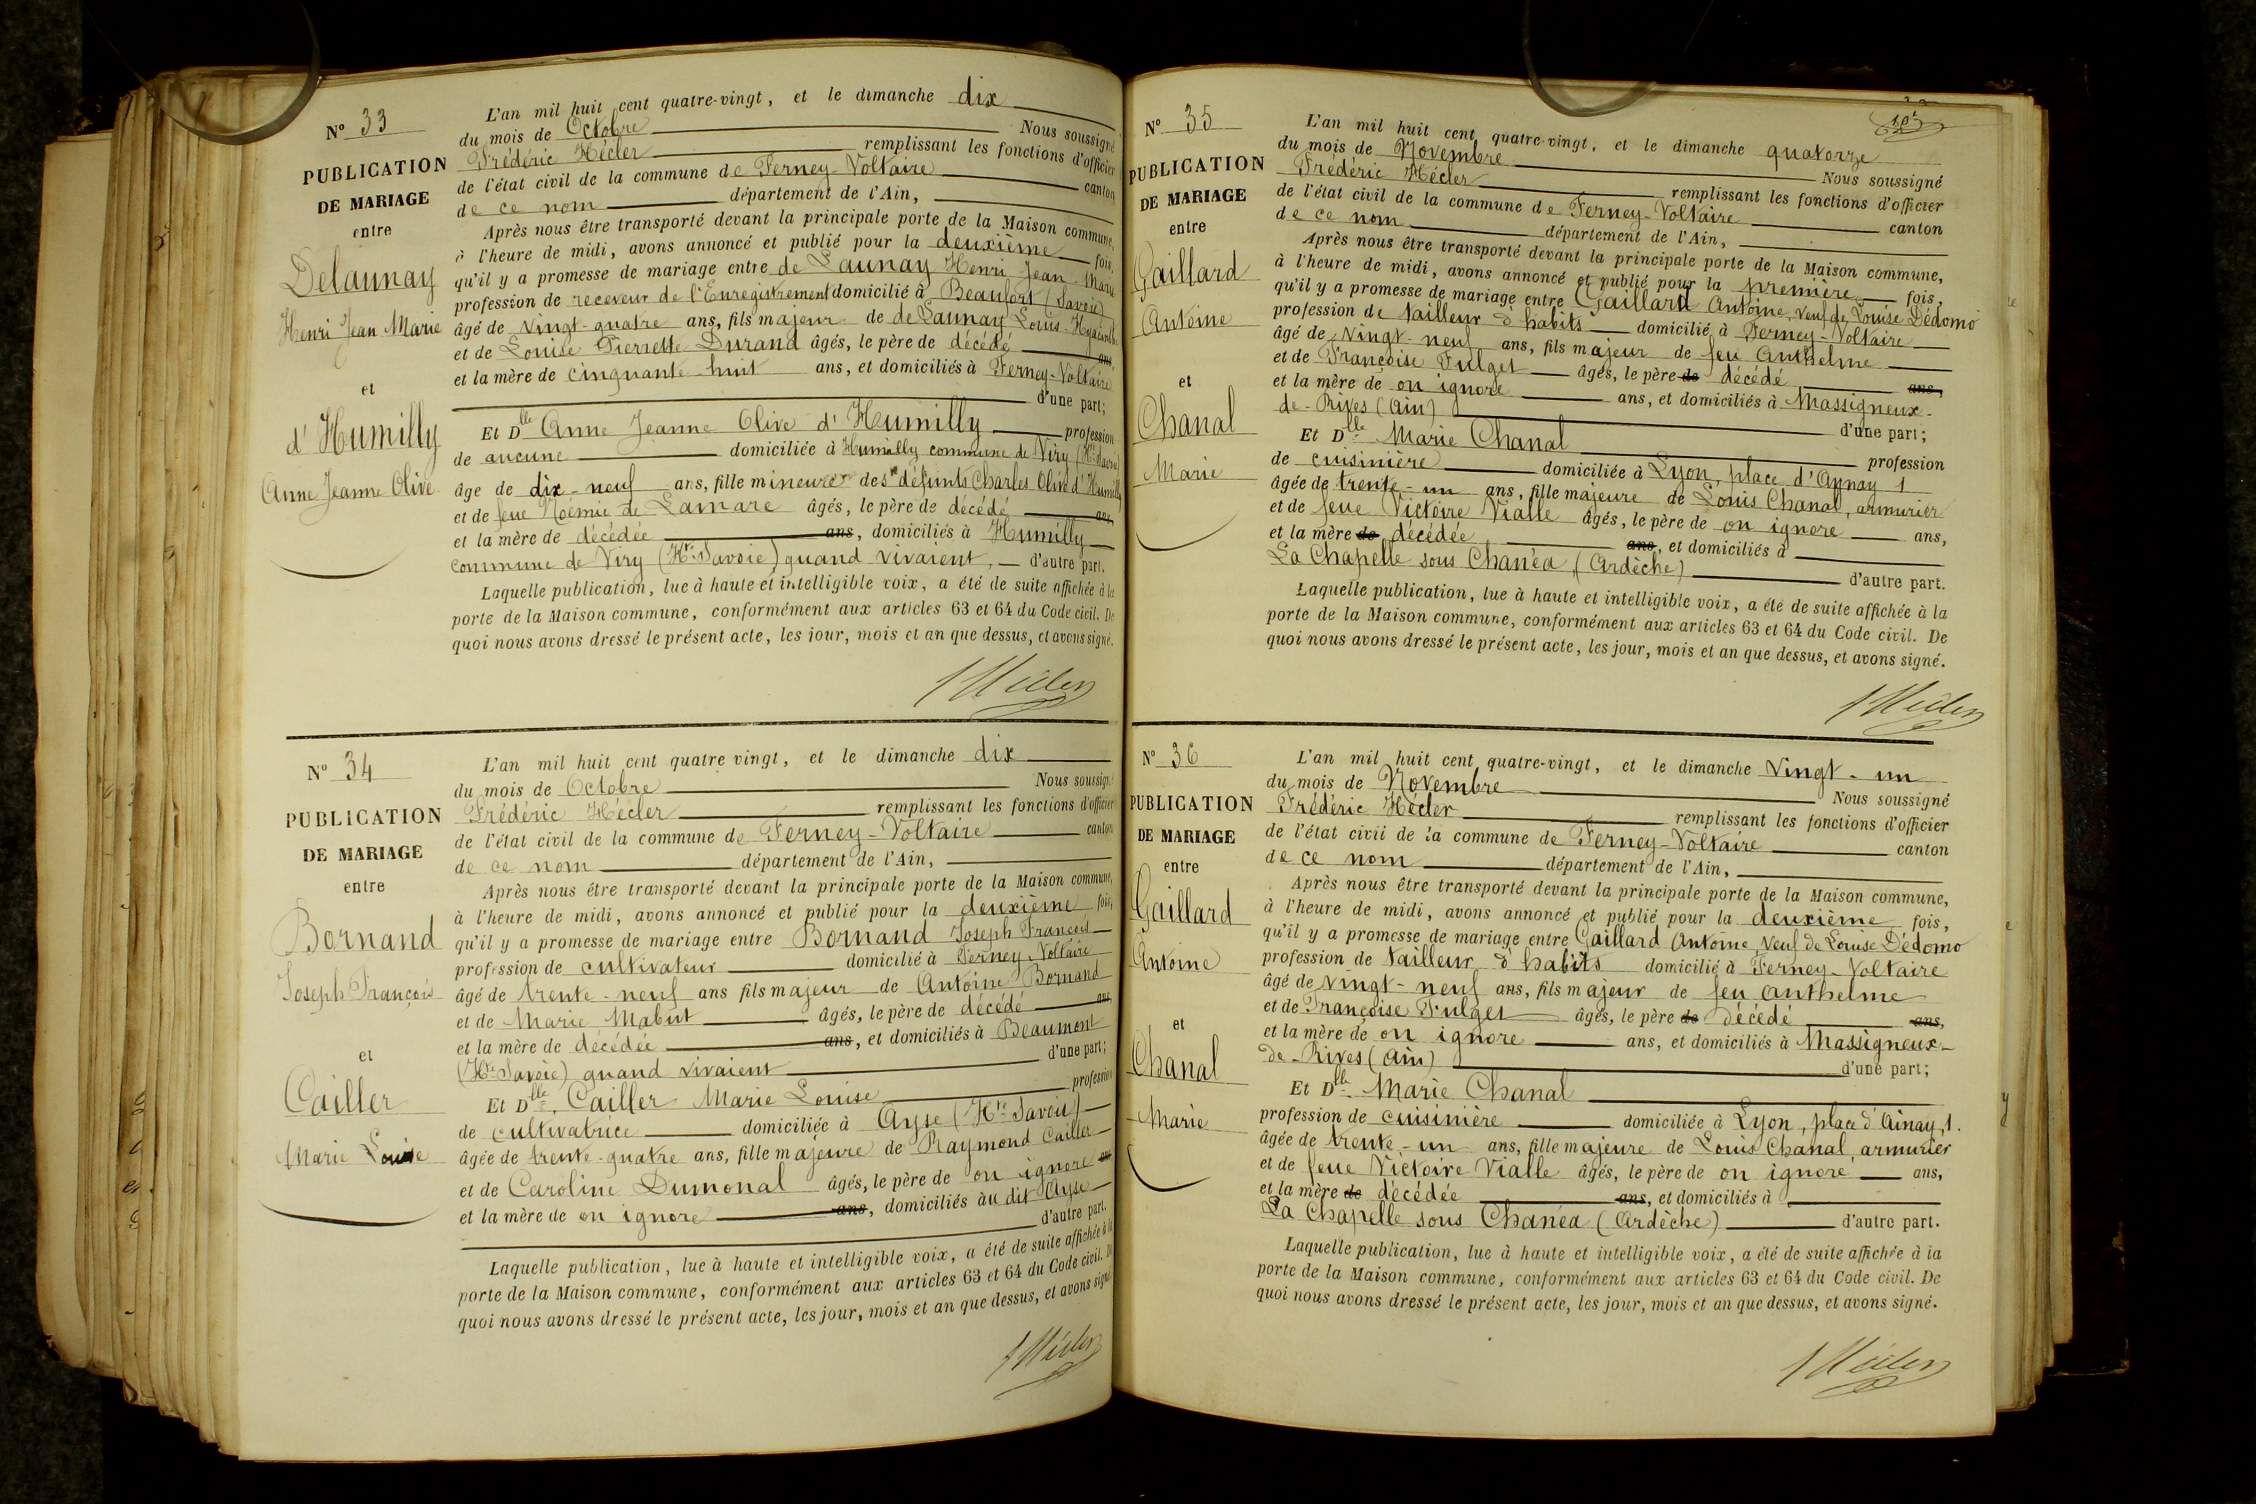 N° 33
PUBLICATION
DE MARIAGE
entre
Delaunay
Henri Jean Marie
et
d'Humilly
Anne Jeanne Olive
L'an mil huit cent quatre-vingt, et le dimanche dix
du mois de Octobre Nous soussigné
Frédéric Hécler remplissant les fonctions d'officier
de l'état civil de la commune de Ferney-Voltaire canton
de ce nom département de l'Ain,
Après nous être transporté devant la principale porte de la Maison commune,
à l'heure de midi, avons annoncé et publié pour la deuxième fois,
qu'il y a promesse de mariage entre de Launay Henri Jean Marie
profession de receveur de l'Enregistrement domicilié à Beaufort (Savoie)
âgé de vingt-quatre ans, fils majeur de de Launay Louis Hyacinthe
et de Louise Pierrette Durand âgés, le père de décédé ans,
et la mère de cinquante huit ans, et domiciliés à Ferney-Voltaire
d'une part;
Et Dlle Anne Jeanne Olive d'Humilly profession
de aucune domiciliée à Humilly commune de Viry (Hte Savoie)
âgé de dix-neuf ans, fille mineure des défunts Charles Olive d'Humilly
et de feue Noémie de Lamare âgés, le père de décédé ans,
et la mère de décédée ans, domiciliés à Humilly
commune de Viry (Hte Savoie) quand vivaient, d'autre part.
Laquelle publication, lue à haute et intelligible voix, a été de suite affichée à la
porte de la Maison commune, conformément aux articles 63 et 64 du Code civil. De
quoi nous avons dressé le présent acte, les jour, mois et an que dessus, et avons signé.
FHécler
N° 34
PUBLICATION
DE MARIAGE
entre
Bornand
Joseph François
et
Cailler
Marie Louise
L'an mil huit cent quatre vingt, et le dimanche dix
du mois de Octobre Nous soussigné
Frédéric Hécler remplissant les fonctions d'officier
de l'état civil de la commune de Ferney-Voltaire canton
de ce nom département de l'Ain,
Après nous être transporté devant la principale porte de la Maison commune,
à l'heure de midi, avons annoncé et publié pour la deuxième fois,
qu'il y a promesse de mariage entre Bornand Joseph François
profession de cultivateur domicilié à Ferney-Voltaire
âgé de trente-neuf ans fils majeur de Antoine Bornand
et de Marie Mabut âgés, le père de décédé ans,
et la mère de décédée ans, et domiciliés à Beaumont
(Hte Savoie) quand vivaient d'une part;
Et Dlle Cailler Marie Louise profession
de cultivatrice domiciliée à Ayse (Hte Savoie)
âgée de trente-quatre ans, fille majeure de Raymond Cailler
et de Caroline Dumonal âgés, le père de on ignore ans
et la mère de on ignore ans, domiciliés au dit Ayse
d'autre part.
Laquelle publication, lue à haute et intelligible voix, a été de suite affichée à la
porte de la Maison commune, conformément aux articles 63 et 64 du Code civil. De
quoi nous avons dressé le présent acte, les jour, mois et an que dessus, et avons signé.
FHécler
N° 35
PUBLICATION
DE MARIAGE
entre
Gaillard
Antoine
et
Chanal
Marie
L'an mil huit cent quatre-vingt, et le dimanche quatorze
du mois de Novembre Nous soussigné
Frédéric Hécler remplissant les fonctions d'officier
de l'état civil de la commune de Ferney-Voltaire canton
de ce nom département de l'Ain,
Après nous être transporté devant la principale porte de la Maison commune,
à l'heure de midi, avons annoncé et publié pour la première fois,
qu'il y a promesse de mariage entre Gaillard Antoine, veuf de Louise Dédomo
profession de tailleur d'habits domicilié à Ferney-Voltaire
âgé de vingt-neuf ans, fils majeur de feu Anthelme
et de Françoise Fulget âgés, le père de décédé ans,
et la mère de on ignore ans, et domiciliés à Massigneux-
de-Rives (Ain) d'une part;
Et Dlle Marie Chanal profession
de cuisinière domiciliée à Lyon, place d'Aynay 1
âgée de trente-un ans, fille majeure de Louis Chanal, armurier
et de feue Victoire Vialle âgés, le père de on ignore ans,
et la mère de décédée ans, et domiciliés à
La Chapelle sous Chanéa, (Ardèche) d'autre part.
Laquelle publication, lue à haute et intelligible voix, a été de suite affichée à la
porte de la Maison commune, conformément aux articles 63 et 64 du Code civil. De
quoi nous avons dressé le présent acte, les jour, mois et an que dessus, et avons signé.
FHécler
N° 36
PUBLICATION
DE MARIAGE
entre
Gaillard
Antoine
et
Chanal
Marie
L'an mil huit cent quatre-vingt, et le dimanche vingt-un
du mois de Novembre Nous soussigné
Frédéric Hécler remplissant les fonctions d'officier
de l'état civil de la commune de Ferney-Voltaire canton
de ce nom département de l'Ain,
Après nous être transporté devant la principale porte de la Maison commune,
à l'heure de midi, avons annoncé et publié pour la deuxième fois,
qu'il y a promesse de mariage entre Gaillard Antoine, veuf de Louise Dédomo
profession de tailleur d'habits domicilié à Ferney-Voltaire
âgé de vingt-neuf ans, fils majeur de feu Anthelme
et de Françoise Fulget âgés, le père de décédé ans,
et la mère de on ignore ans, et domiciliés à Massigneux-
de-Rives (Ain) d'une part;
Et Dlle Marie Chanal
profession de cuisinière domiciliée à Lyon, place d'Ainay, 1.
âgée de trente-un ans, fille majeure de Louis Chanal, armurier
et de feue Victoire Vialle âgés, le père de on ignore ans,
et la mère de décédée ans, et domiciliés à
La Chapelle sous Chanéa (Ardèche) d'autre part.
Laquelle publication, lue à haute et intelligible voix, a été de suite affichée à la
porte de la Maison commune, conformément aux articles 63 et 64 du Code civil. De
quoi nous avons dressé le présent acte, les jour, mois et an que dessus, et avons signé.
FHécler